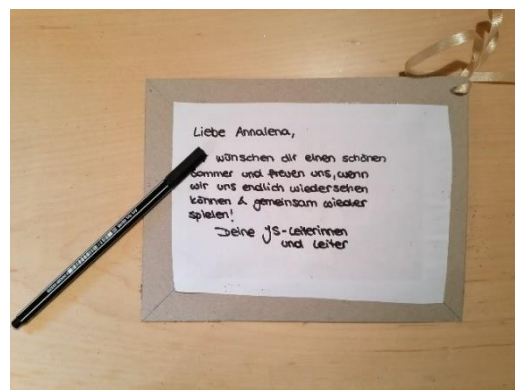 Liebe Annalena,
wünschen dir einen schönen
Sommer und freuen uns, wenn
wir uns endlich wiedersehen
können & gemeinsam wieder
spielen!
Deine JS-Leiterinnen
und Leiter